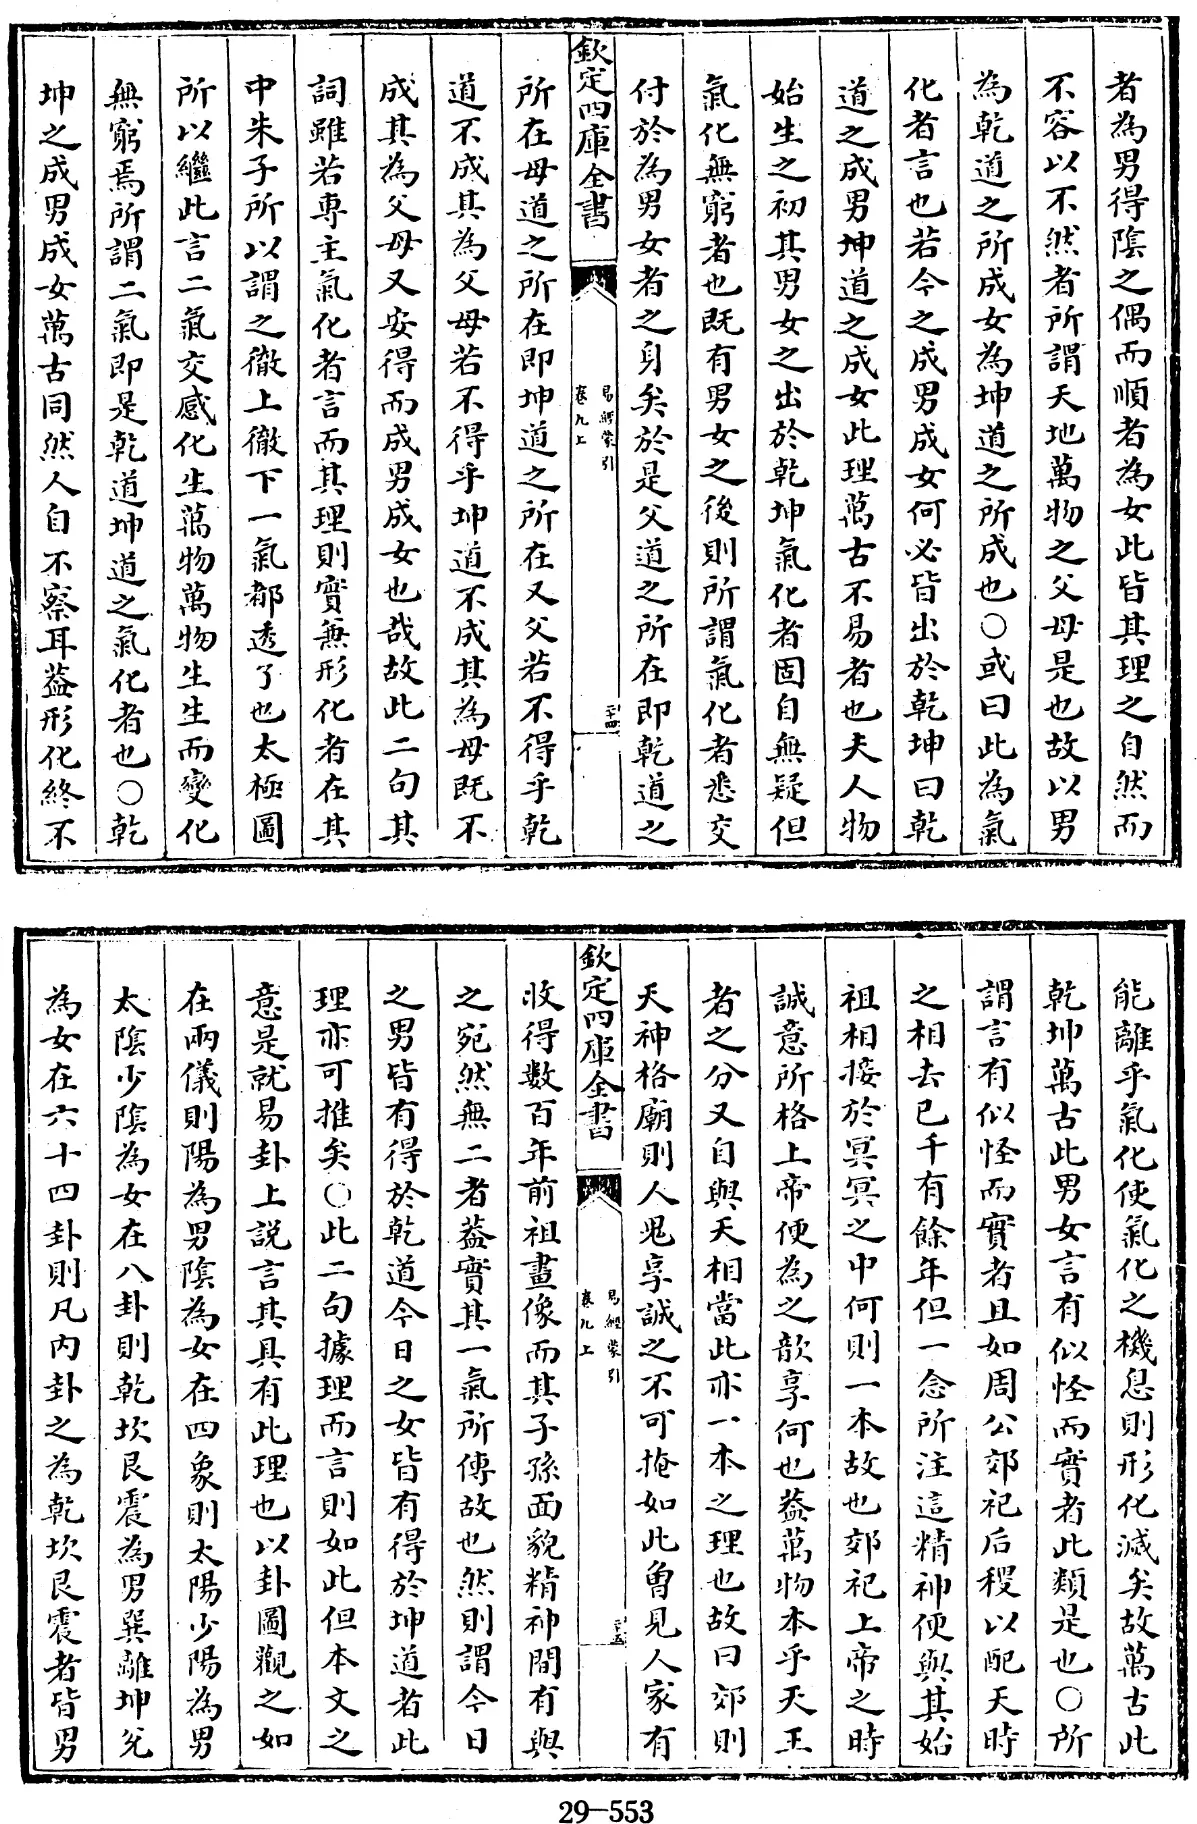 者為男得陰之偶而順者為女此皆其理之自然而
不容以不然者所謂天地萬物之父母是也故以男
為乾道之所成女為坤道之所成也○或曰此為氣
化者言也若今之成男成女何必皆出於乾坤曰乾
道之成男坤道之成女此理萬古不易者也夫人物
始生之初其男女之出於乾坤氣化者固自無疑但
氣化無窮者也既有男女之後則所謂氣化者悉交
付於為男女者之身矣於是父道之所在即乾道之
欽定四庫全書
易經蒙引
卷九上
二十四
所在母道之所在即坤道之所在又父若不得乎乾
道不成其為父母若不得乎坤道不成其為母既不
成其為父母又安得而成男成女也哉故此二句其
詞雖若專主氣化者言而其理則實無形化者在其
中朱子所以謂之徹上徹下一氣都透了也太極圖
所以繼此言二氣交感化生萬物萬物生生而變化
無窮焉所謂二氣即是乾道坤道之氣化者也○乾
坤之成男成女萬古同然人自不察耳葢形化終不
能離乎氣化使氣化之機息則形化滅矣故萬古此
乾坤萬古此男女言有似怪而實者此類是也○所
謂言有似怪而實者且如周公郊祀后稷以配天時
之相去已千有餘年但一念所注這精神便與其始
祖相接於冥冥之中何則一本故也郊祀上帝之時
誠意所格上帝便為之歆享何也葢萬物本乎天王
者之分又自與天相當此亦一本之理也故曰郊則
天神格廟則人鬼享誠之不可掩如此曾見人家有
欽定四庫全書
易經蒙引
卷九上
二十五
收得數百年前祖畫像而其子孫面貌精神間有與
之宛然無二者葢實其一氣所傳故也然則謂今日
之男皆有得於乾道今日之女皆有得於坤道者此
理亦可推矣○此二句據理而言則如此但本文之
意是就易卦上說言其具有此理也以卦圖觀之如
在兩儀則陽為男陰為女在四象則太陽少陽為男
太陰少陰為女在八卦則乾坎艮震為男巽離坤兌
為女在六十四卦則凡內卦之為乾坎艮震者皆男
29-553